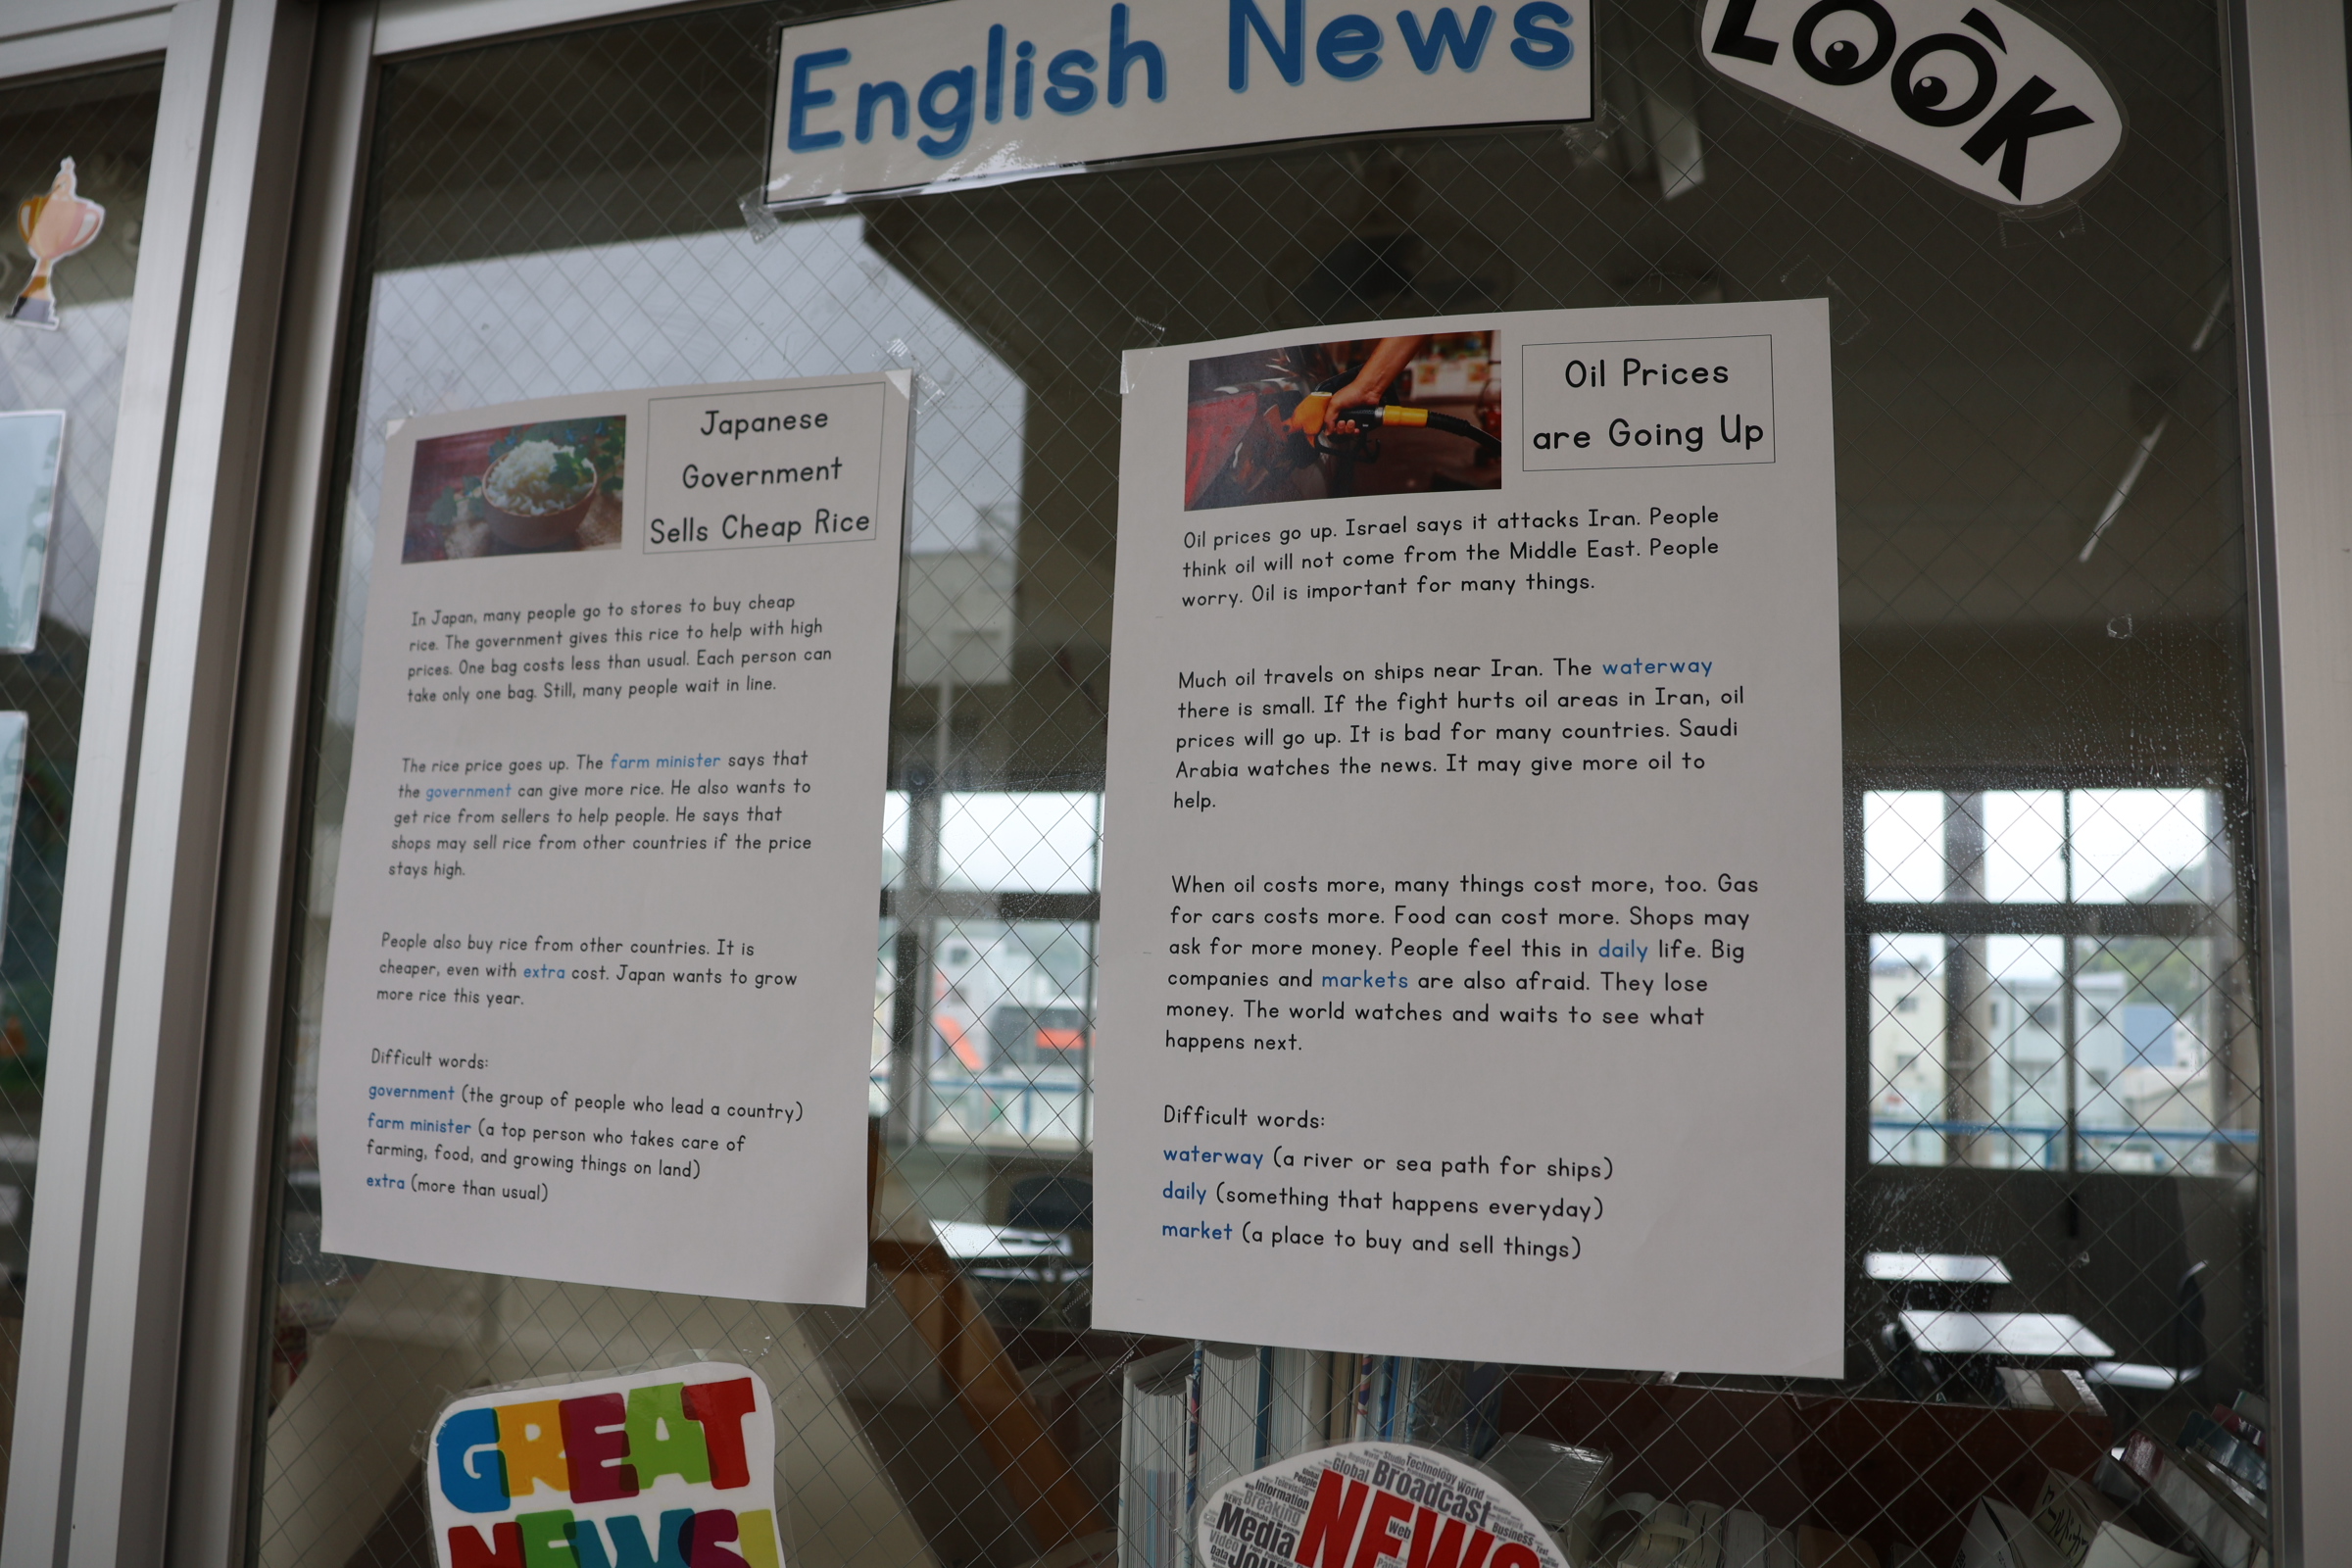 English News
LOOK
Japanese
Government
Sells Cheap Rice
In Japan, many people go to stores to buy cheap
rice. The government gives this rice to help with high
prices. One bag costs less than usual. Each person can
take only one bag. Still, many people wait in line.
The rice price goes up. The farm minister says that
the government can give more rice. He also wants to
get rice from sellers to help people. He says that
shops may sell rice from other countries if the price
stays high.
People also buy rice from other countries. It is
cheaper, even with extra cost. Japan wants to grow
more rice this year.
Difficult words:
government (the group of people who lead a country)
farm minister (a top person who takes care of
farming, food, and growing things on land)
extra (more than usual)
Oil Prices
are Going Up
Oil prices go up. Israel says it attacks Iran. People
think oil will not come from the Middle East. People
worry. Oil is important for many things.
Much oil travels on ships near Iran. The waterway
there is small. If the fight hurts oil areas in Iran, oil
prices will go up. It is bad for many countries. Saudi
Arabia watches the news. It may give more oil to
help.
When oil costs more, many things cost more, too. Gas
for cars costs more. Food can cost more. Shops may
ask for more money. People feel this in daily life. Big
companies and markets are also afraid. They lose
money. The world watches and waits to see what
happens next.
Difficult words:
waterway (a river or sea path for ships)
daily (something that happens everyday)
market (a place to buy and sell things)
GREAT
NEWS!
Technology
World
Global
Broadcast
People
Television
Information
NEWS
Breaking
Web
Business
Media
Video
Data
NEWS